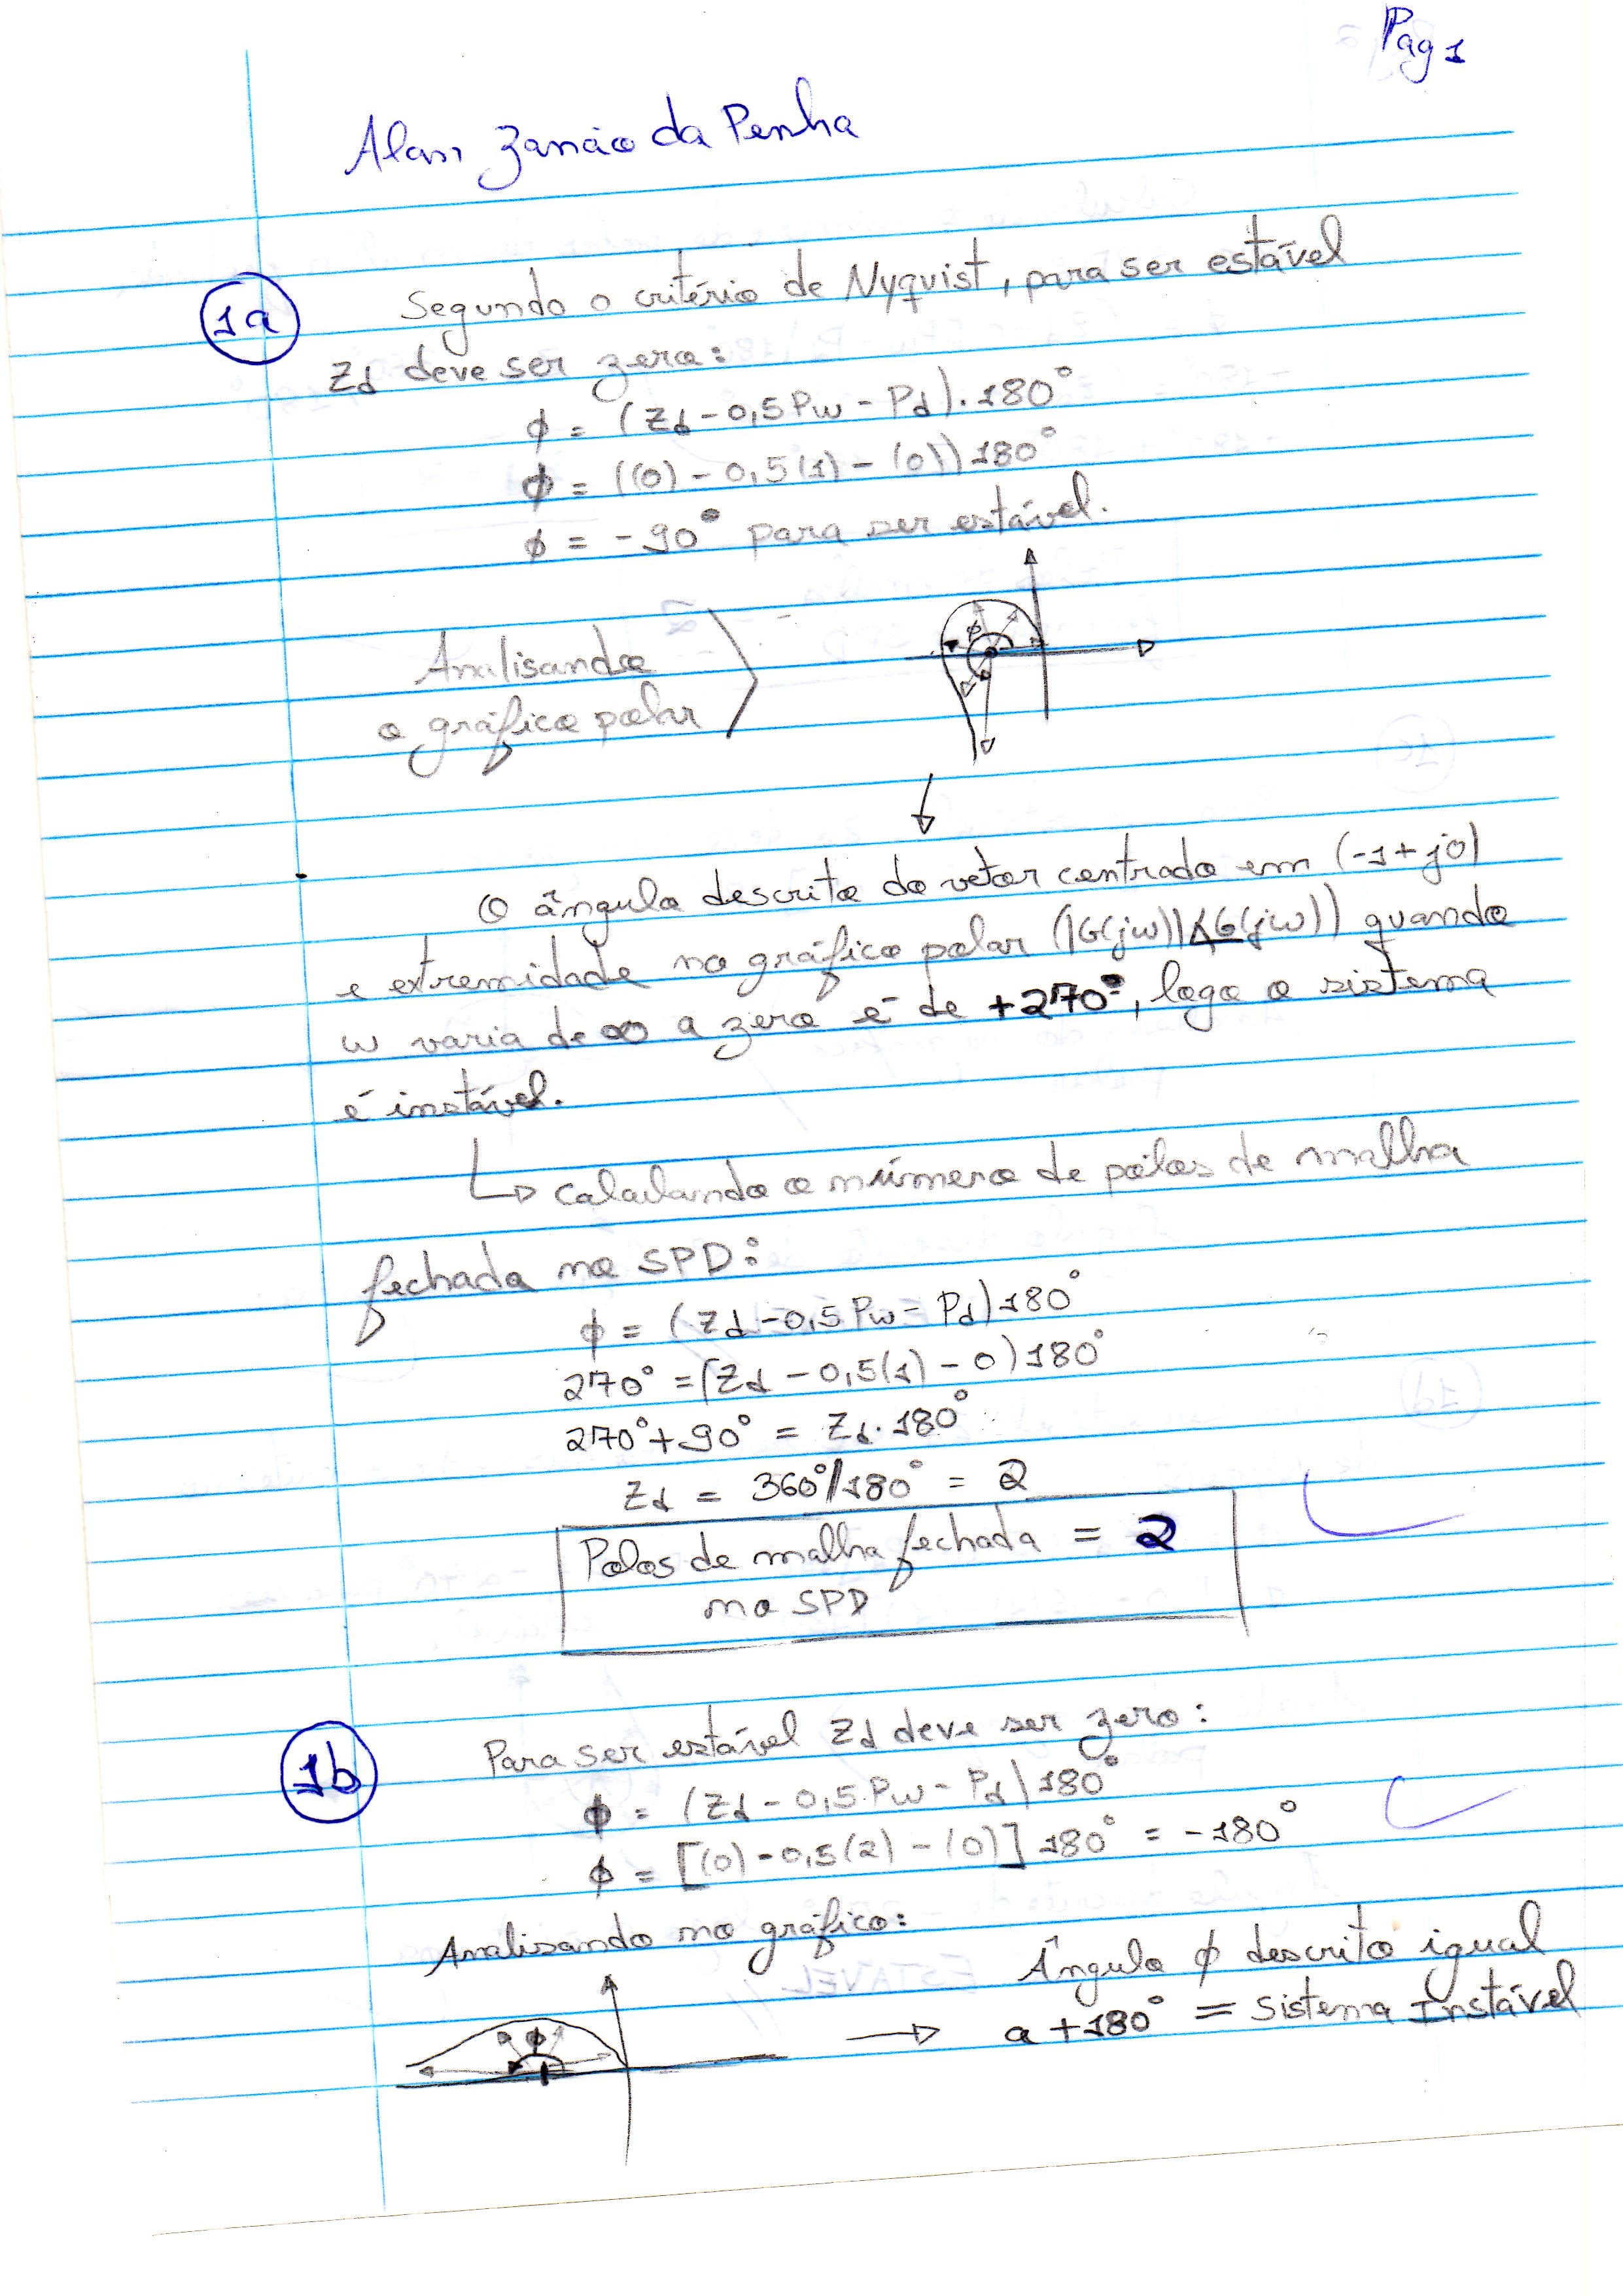 Pag 1
Alan Zanão da Penha
1a
Segundo o critério de Nyquist, para ser estável
Zd deve ser zero:
ϕ = (Zd - 0,5Pw - Pd).180°
ϕ = ((0) - 0,5(1) - (0))180°
ϕ = -90° para ser estável.
Analisando
o gráfico polar
ϕ
O ângulo descrito do vetor centrado em (-1+j0)
e extremidade no gráfico polar (|G(jw)|∡G(jw)) quando
w varia de ∞ a zero é de +270°, logo o sistema
é instável.
↳ calculando o número de pólos de malha
fechada no SPD:
ϕ = (Zd - 0,5Pw - Pd)180°
270° = (Zd - 0,5(1) - 0)180°
270° + 90° = Zd.180°
Zd = 360°/180° = 2
Polos de malha fechada = 2
no SPD
1b
Para ser estável Zd deve ser zero:
ϕ = (Zd - 0,5.Pw - Pd)180°
ϕ = [(0) - 0,5(2) - (0)]180° = -180°
Analisando no gráfico:
ϕ
Ângulo ϕ descrito igual
a +180° = Sistema Instável